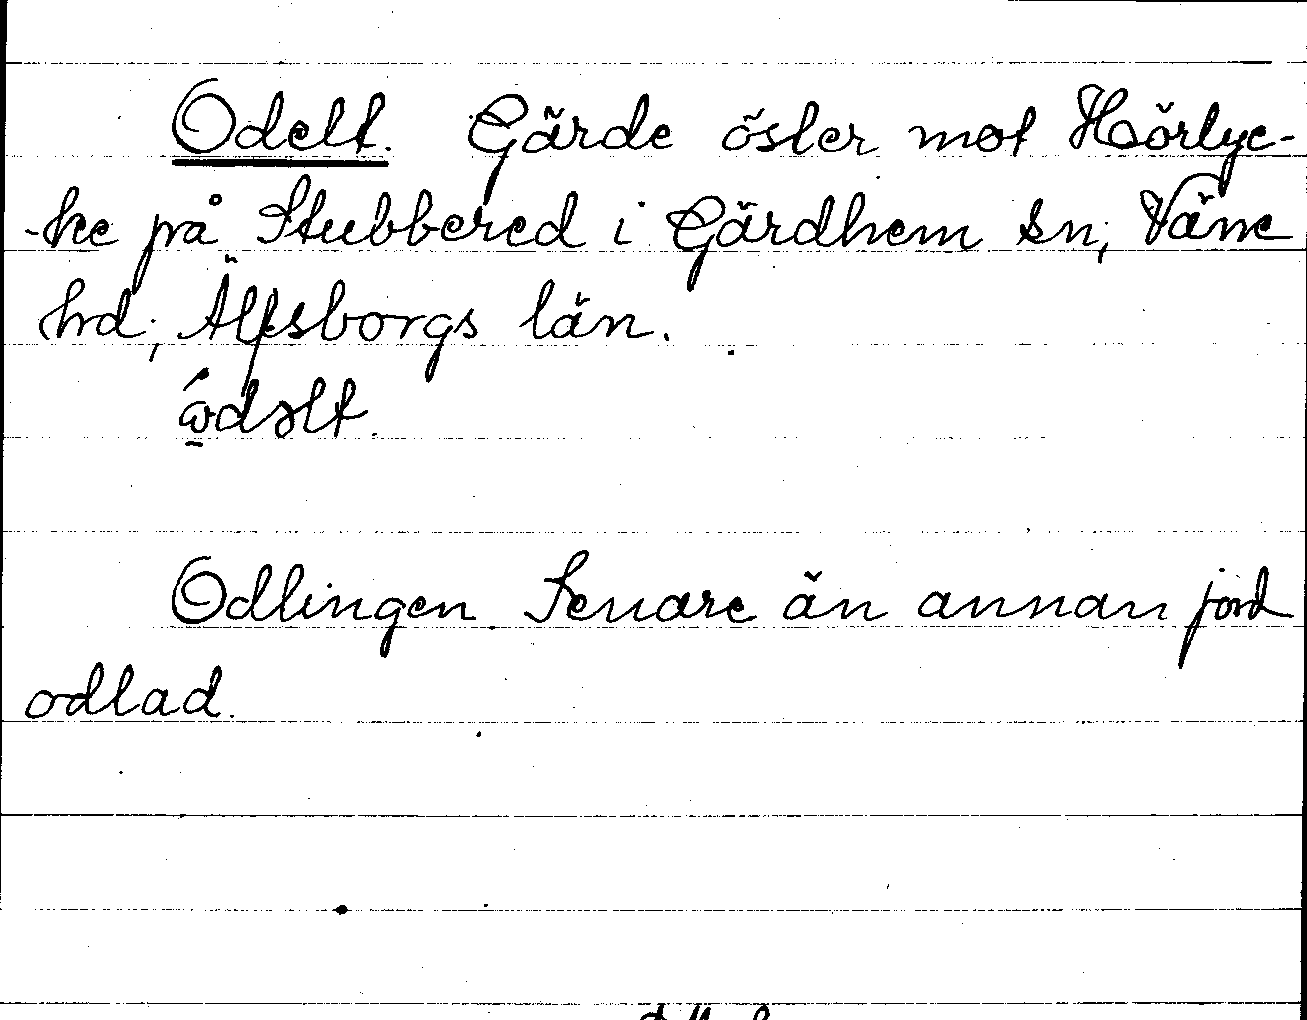 Odelt. Gärde öster mot Hörlyc-
-ke på Stubbered i Gärdhem sn, Väne
hrd, Älfsborgs län.
ώ̱dəlt.
Odlingen. Senare än annan jord
odlad.